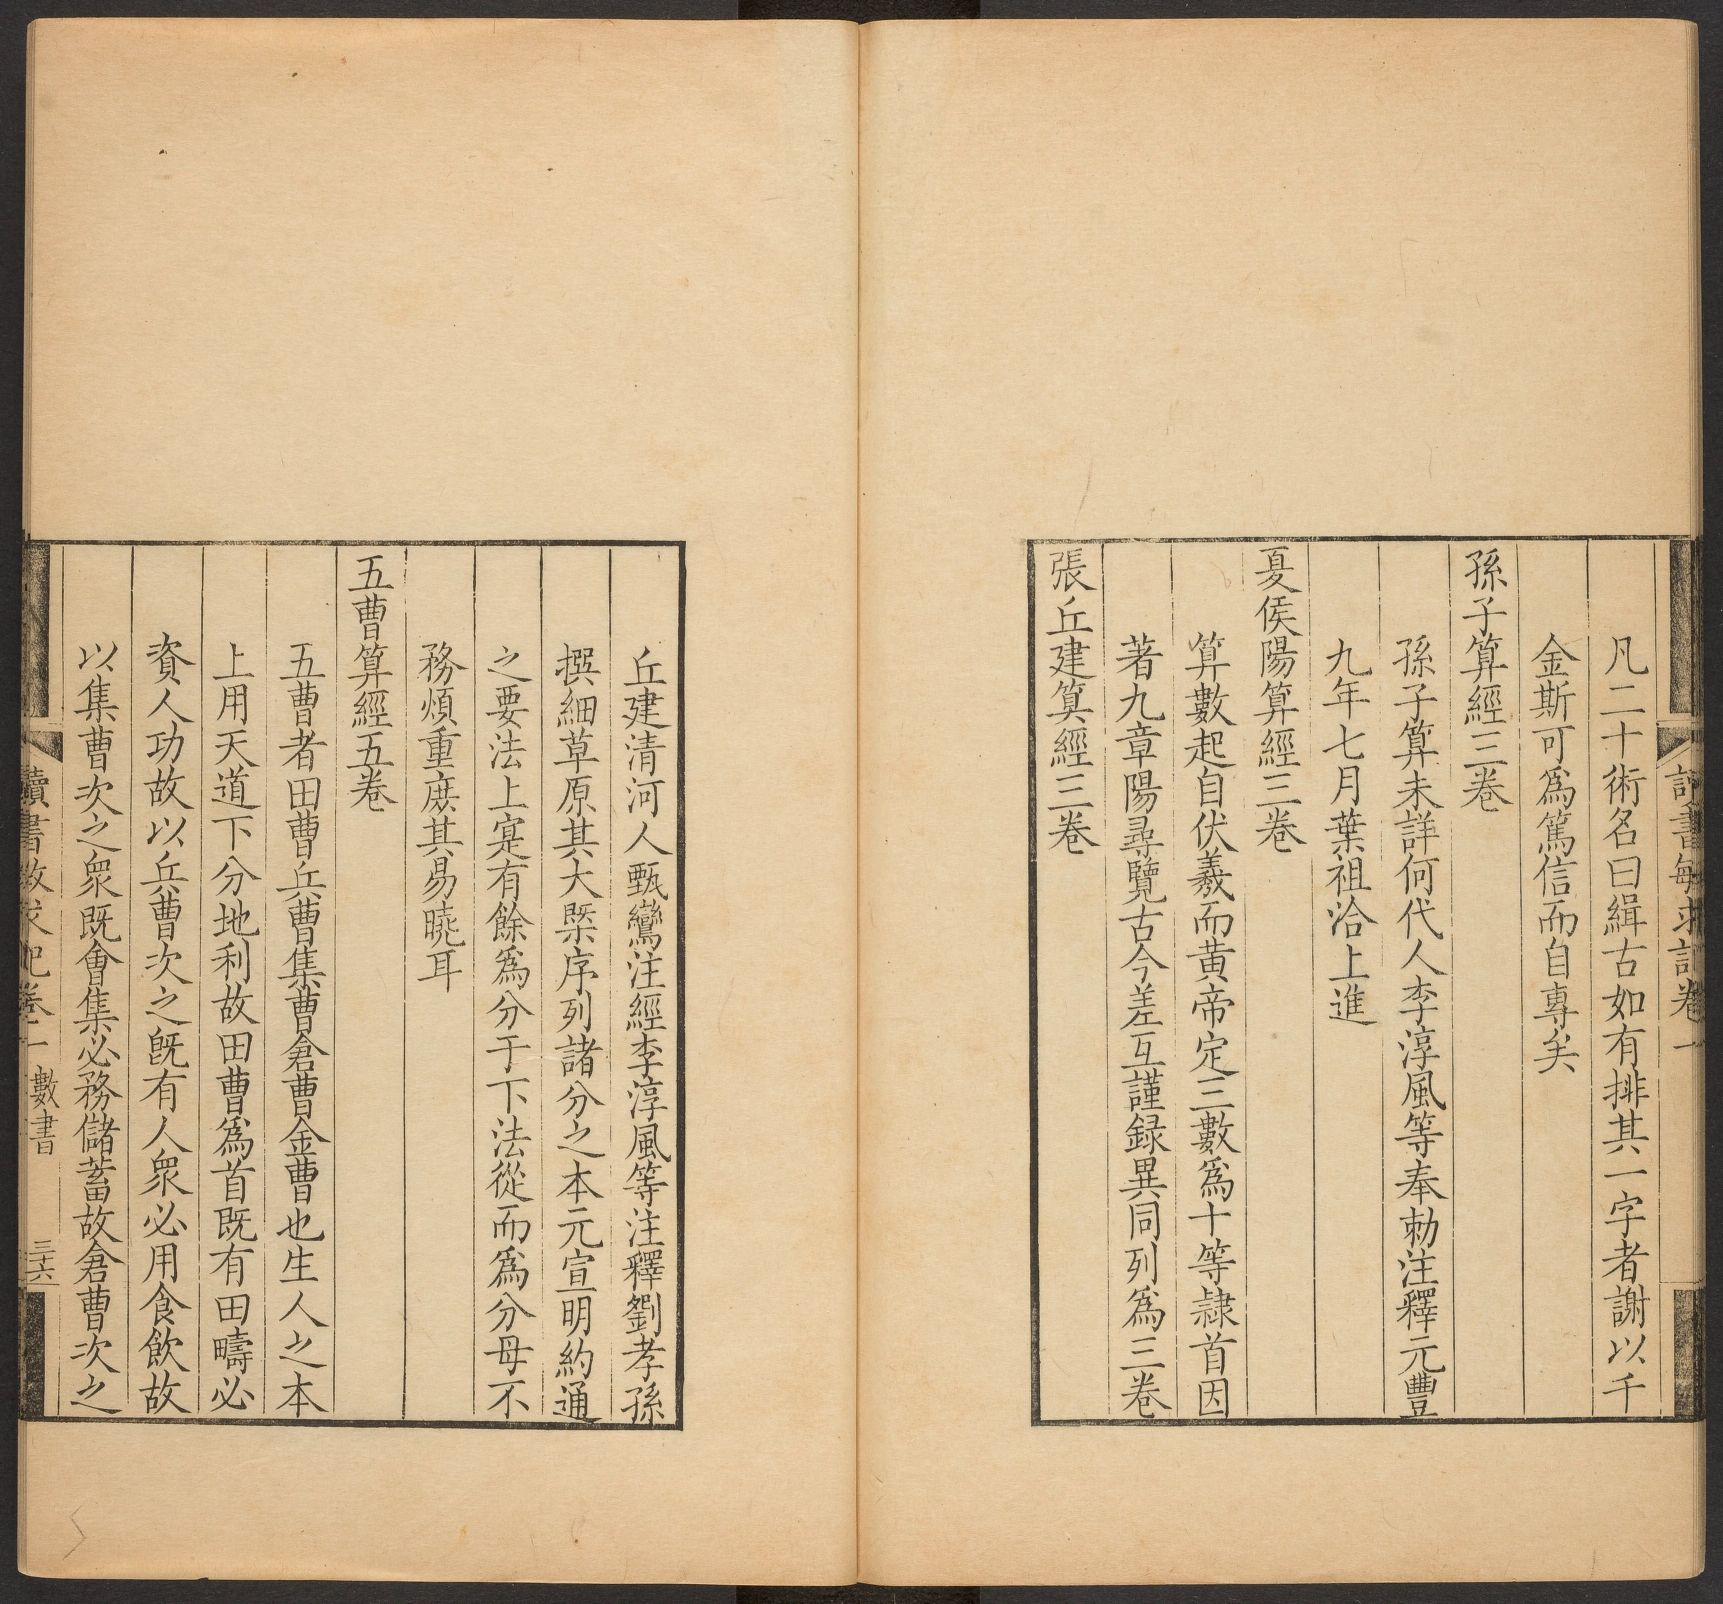 讀書敏求記卷一
凡二十術名曰緝古如有排其一字者謝以千
金斯可爲篤信而自專矣
孫子算經三卷
孫子算未詳何代人李淳風等奉勅注釋元豐
九年七月葉祖洽上進
夏侯陽算經三卷
算數起自伏羲而黄帝定三數爲十等隷首因
著九章陽尋覽古今差互謹録異同列爲三卷
張丘建筭經三卷
丘建清河人甄鸞注經李淳風等注釋劉孝孫
撰細草原其大槩序列諸分之本元宣明約通
之要法上寔有餘爲分于下法從而爲分母不
務煩重庶其易曉耳
五曹算經五卷
五曹者田曹兵曹集曹倉曹金曹也生人之本
上用天道下分地利故田曹爲首既有田疇必
資人功故以兵曹次之旣有人衆必用食飲故
以集曹次之衆既會集必務儲蓄故倉曹次之
讀書敏求記卷一 數書 三十六